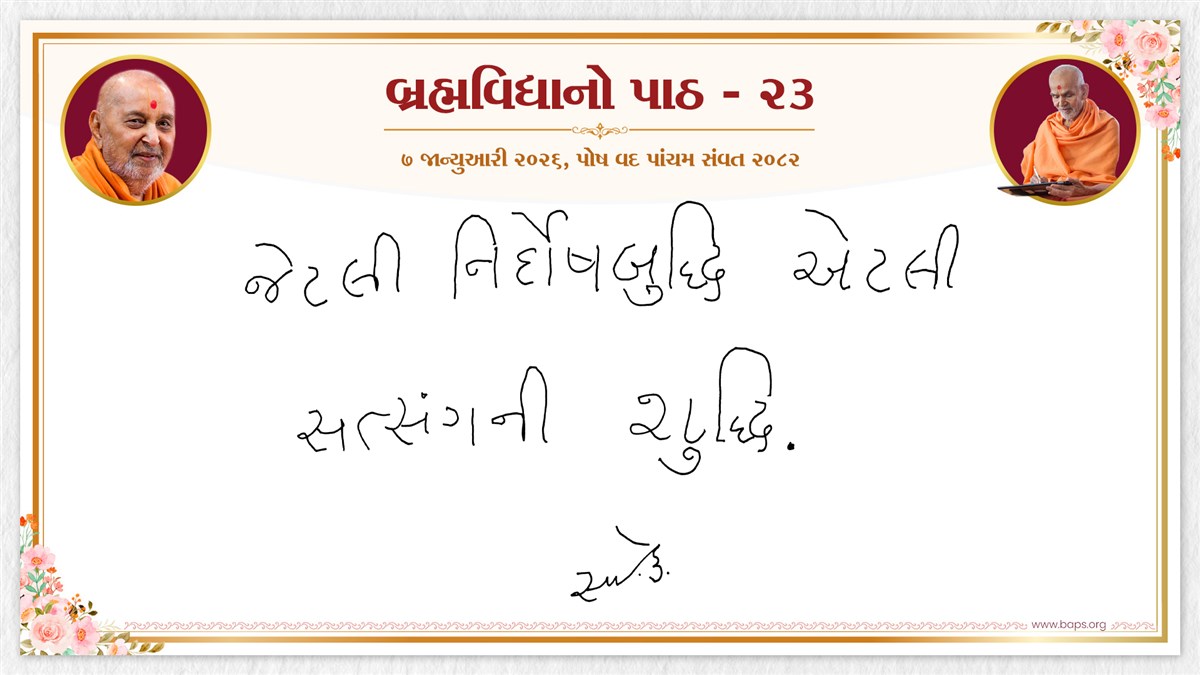 બ્રહ્મવિદ્યાનો પાઠ - ૨૩
૭ જાન્યુઆરી ૨૦૨૬, પોષ વદ પાંચમ સંવત ૨૦૮૨
જેટલી નિર્દોષબુદ્ધિ એટલી
સત્સંગની શુદ્ધિ.
www.baps.org